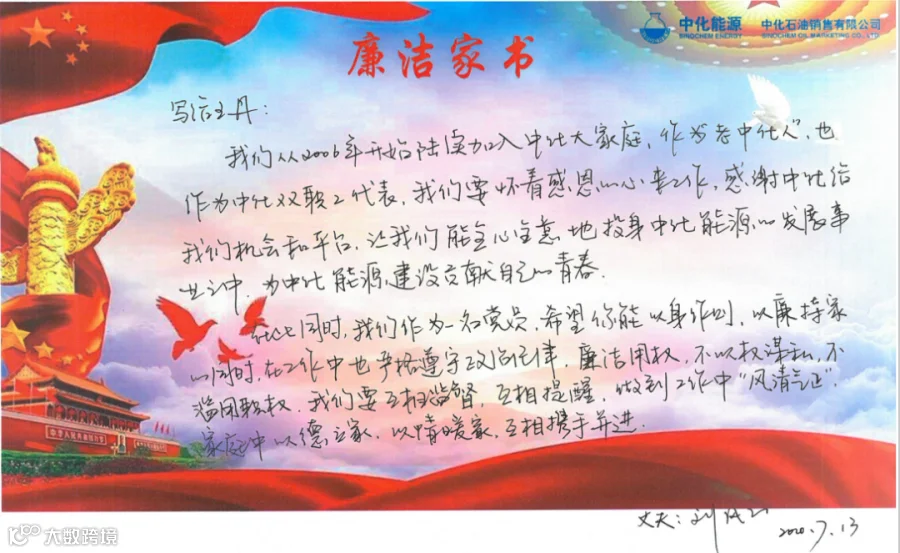 中化能源
SINOCHEM ENERGY
中化石油销售有限公司
SINOCHEM OIL MARKETING CO., LTD
廉洁家书
写给王丹:
我们从2006年开始陆续加入中化大家庭,作为老中化人,也
作为中化双职工代表,我们要怀着感恩的心来工作,感谢中化给
我们机会和平台,让我们能全心全意地投身中化能源的发展事
业之中,为中化能源建设贡献自己的青春.
在此同时,我们作为一名党员,希望你能以身作则,以廉持家
的同时,在工作中也严格遵守政治纪律,廉洁用权,不以权谋私,不
滥用职权.我们要互相监督,互相提醒,做到工作中"风清气正",
家庭中以德立家,以情暖家,互相携手并进.
丈夫:刘
2020.7.13
大数跨境